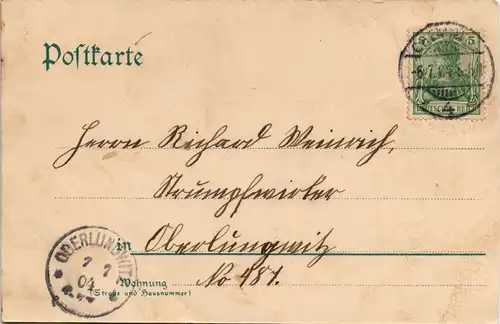 Postkarte
5
Herrn Richard Weinrich,
Strumpfwirker
in Oberlungwitz
Wohnung No 481.
(Straße und Hausnummer)
OBERLUNGWITZ
7 7
04